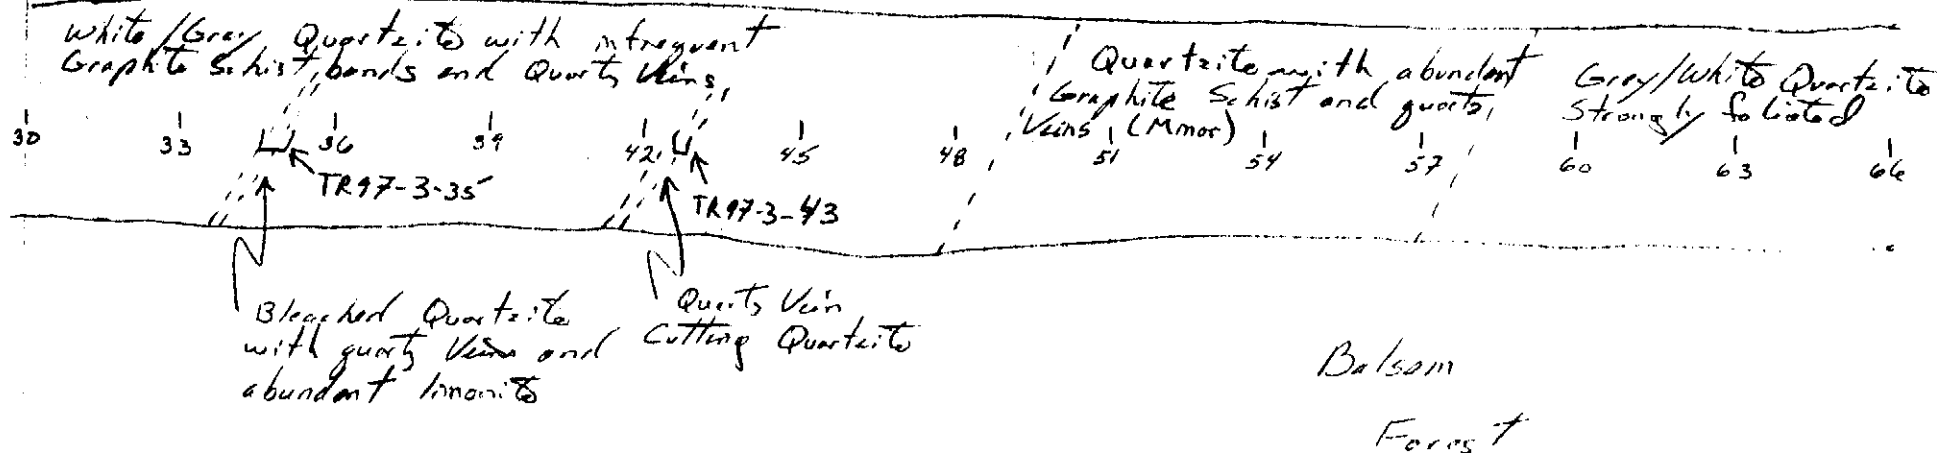 White/Gray Quartzite with infrequent
Graphite Schist bands and Quartz Veins
Quartzite with abundant
Graphite Schist and quartz
Veins (Minor)
Grey/White Quartzite
Strongly foliated
30 33 36 39 42 45 48 51 54 57 60 63 66
TR97-3-35
TR97-3-43
Bleached Quartzite
with quartz Veins and
abundant limonite
Quartz Vein
Cutting Quartzite
Balsam
Forest